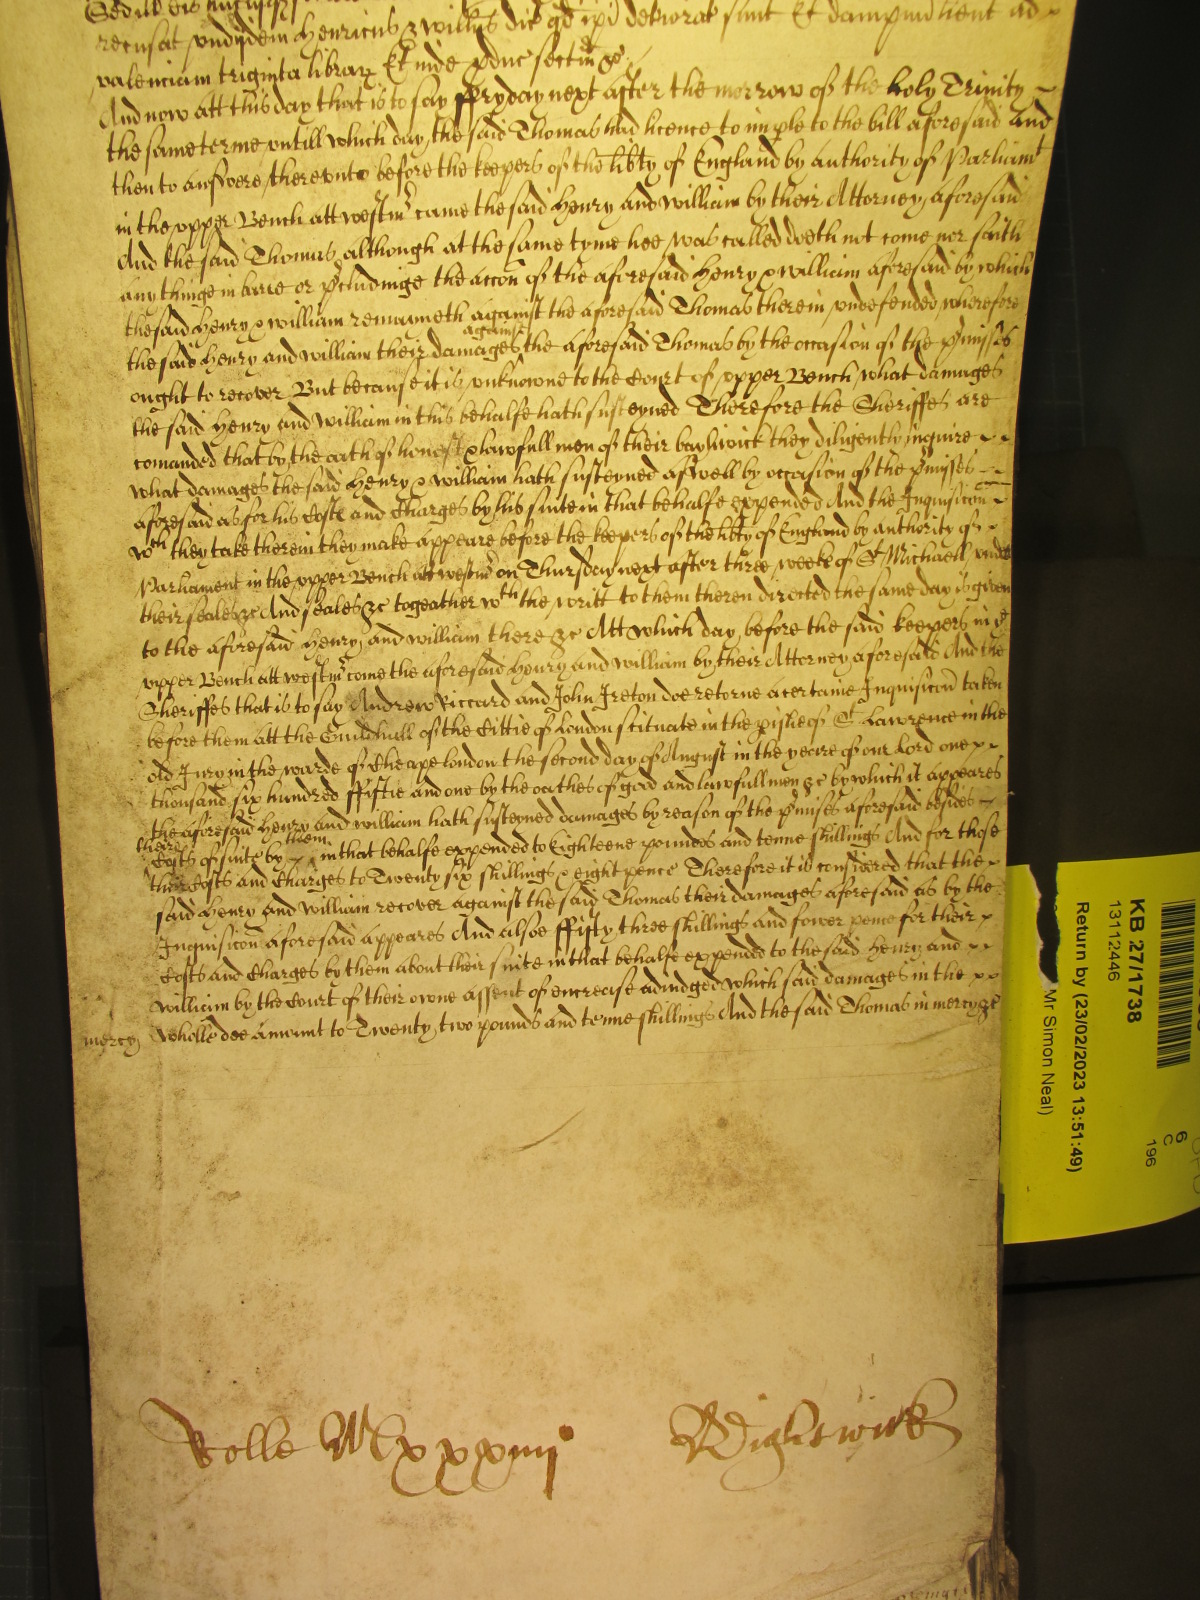 recusat vnd ijdem Henricus & Will'us dic' qd ip'i deteriorat' sunt Et dampnu' h'ent ad
valenciam triginta librar' Et inde p'duc' sectam &c'
And now att this day that is to say ffryday next after the morrow of the holy Trinity
the same terme vntill which day, the said Thomas had licence to imple to the bill aforesaid And
then to answere therevnto before the keepers of the lib'ty of England by authority of Parliam't
in the vpper Bench att westm'r came the said Henry and William by their Attorney aforesaid
And the said Thomas although at the same tyme hee was called doeth not come nor saith
any thinge in barre or p'cludinge the acc'on of the aforesaid Henry & william aforesaid by which
the said Henry & william remaineth against the aforesaid Thomas therein vndefended wherefore
the said Henry and william their damages against the aforesaid Thomas by the occasion of the p'misses
ought to recover But because it is vnknowne to the Court of vpper Bench what damages
the said Henry and William in this behalfe hath susteyned Therefore the Sheriffes are
comanded that by the oath of honest & lawfull men of their bayliwick they diligently inquire
what damages the said Henry & william hath susteyned aswell by occasion of the p'misses
aforesaid as for his Costs and Charges by his suite in that behalfe expended And the Inquisic'on
w'ch they take therein they make appeare before the keepers of the lib'ty of England by authority of
Parliament in the vpper Bench att westm'r on Thursday next after three weeks of St Michaell vnder
their seales &c And seales &c togeather w'th the writt to them theren directed the same day is given
to the aforesaid Henry and william there &c Att which day before the said keepers in ye
vpper Bench att westm'r come the aforesaid Henry and william by their Attorney aforesaid And the
Sheriffes that is to say Andrew Riccard and John Ireton doe retorne a certaine Inquisic'on taken
before them att the Guildhall of the Cittie of London scituate in the p'ishe of St Lawrence in the
old Jury in the warde of Cheape london the second day of August in the yeare of our Lord one
thousand six hundred ffiftie and one by the oathes of good and lawfull men &c by which it appeares
the aforesaid Henry and william hath susteyned damages by reason of the p'mises aforesaid besides
their Costs of suite by them in that behalfe expended to Eighteene pounds and tenne shillings And for those
their Costs and Charges to Twenty six shillings & eight pence Therefore it is considered that the
said Henry and William recover against the said Thomas their damages aforesaid as by the
Inquisic'on aforesaid appeares And alsoe ffifty three shillings and fower pence for their
Costs and Charges by them about their suite in that behalfe expended to the said Henry and
William by the Court of their owne assent of encrease adiudged which said damages in the
mercy wholle doe amount to Twenty two pounds and tenne shillings And the said Thomas in mercy &c
Rolle Mlxxxiiij
Wightwick
KB 27/1738
13112446
Return by (23/02/2023 13:51:49)
Mr Simon Neal)
6
C
196